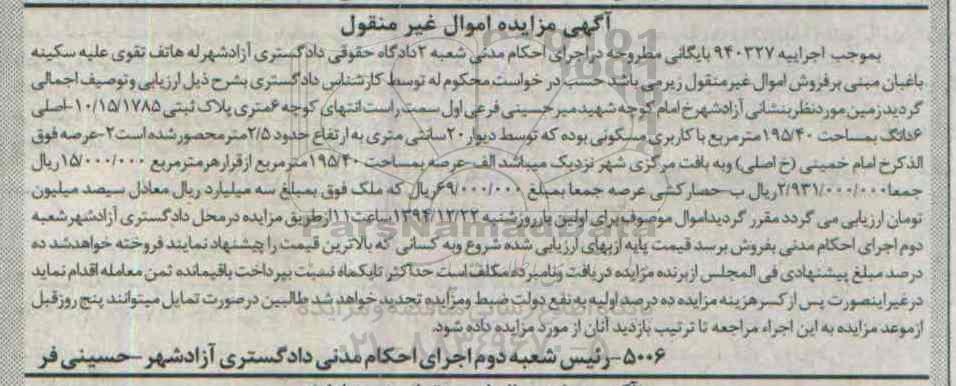 آگهی مزایده اموال غیر منقول
بموجب اجراییه ۹۴۰۳۲۷ بایگانی مطروحه در اجرای احکام مدنی شعبه ۲ دادگاه حقوقی دادگستری آزادشهر له هاتف تقوی علیه سکینه
باغبان مبنی بر فروش اموال غیرمنقول زیر می باشد حسب در خواست محکوم له توسط کارشناس دادگستری بشرح ذیل ارزیابی و توصیف اجمالی
گردید زمین مورد نظر بنشانی آزادشهر خ امام کوچه شهید میرحسینی فرعی اول سمت راست انتهای کوچه ۶ متری پلاک ثبتی ۱۰/۱۵/۱۷۸۵-اصلی
۶ دانگ بمساحت ۱۹۵/۴۰ متر مربع با کاربری مسکونی بوده که توسط دیوار ۲۰ سانتی متری به ارتفاع حدود ۲/۵ متر محصور شده است ۲-عرصه فوق
الذکر خ امام خمینی (خ اصلی) و به بافت مرکزی شهر نزدیک میباشد الف-عرصه بمساحت ۱۹۵/۴۰ متر مربع از قرار هر متر مربع ۱۵/۰۰۰/۰۰۰ ریال
جمعا ۲/۹۳۱/۰۰۰/۰۰۰ ریال ب-حصار کشی عرصه جمعا بمبلغ ۶۹/۰۰۰/۰۰۰ ریال که ملک فوق بمبلغ سه میلیارد ریال معادل سیصد میلیون
تومان ارزیابی می گردد مقرر گردید اموال موصوف برای اولین بار روز شنبه ۱۳۹۴/۱۲/۲۲ ساعت ۱۱ از طریق مزایده در محل دادگستری آزادشهر شعبه
دوم اجرای احکام مدنی بفروش برسد قیمت پایه از بهای ارزیابی شده شروع و به کسانی که بالاترین قیمت را پیشنهاد نمایند فروخته خواهد شد ده
در صد مبلغ پیشنهادی فی المجلس از برنده مزایده دریافت و نامبرده مکلف است حداکثر تا یکماه نسبت بپرداخت باقیمانده ثمن معامله اقدام نماید
در غیر اینصورت پس از کسر هزینه مزایده ده درصد اولیه به نفع دولت ضبط و مزایده تجدید خواهد شد طالبین در صورت تمایل میتوانند پنج روز قبل
از موعد مزایده به این اجراء مراجعه تا ترتیب بازدید آنان از مورد مزایده داده شود.
۵۰۰۶-رئیس شعبه دوم اجرای احکام مدنی دادگستری آزادشهر -حسینی فر
ParsNamadData